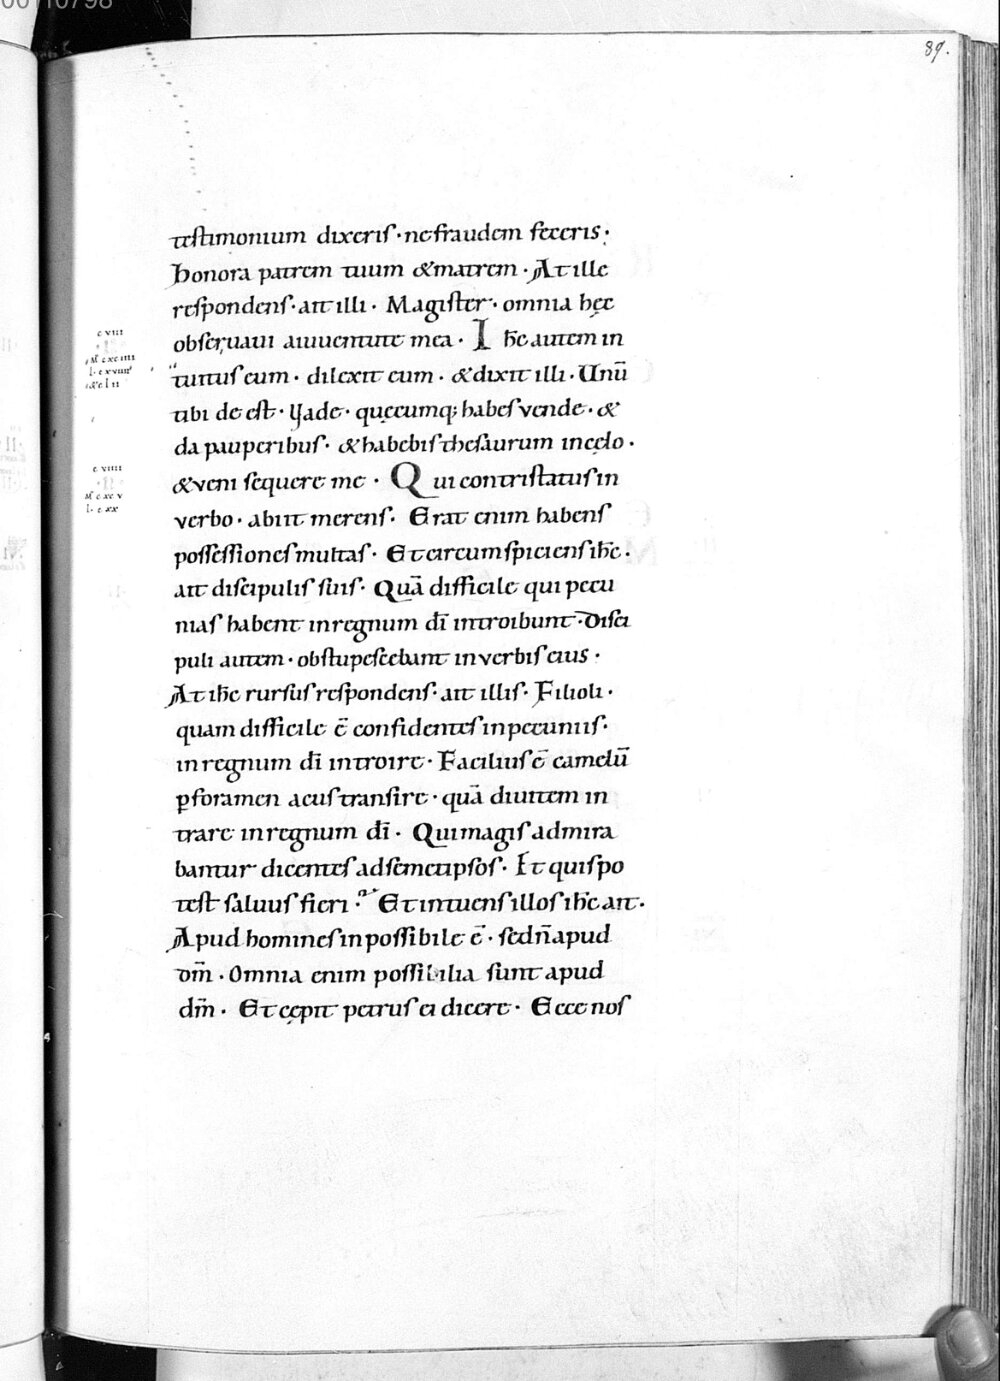 00110798
89.
testimonium dixeris · ne fraudem feceris ·
honora patrem tuum & matrem · At ille
respondens · ait illi · Magister · omnia hęc
obseruaui aiuuentute mea · Ih̄c autem in
tuitus eum · dilexit eum · & dixit illi · Unū
tibi de est · Vade · quęcumq; habes vende · &
da pauperibus · & habebis thesaurum incęlo ·
& veni sequere me · Qui contristatus in
verbo · abiit merens · Erat enim habens
possessiones multas · Et circumspiciens ih̄c ·
ait discipulis suis · Quā difficile qui pecu
nias habent inregnum dī introibunt · Disci
puli autem · obstupescebant inverbis eius ·
At ih̄c rursus respondens · ait illis · Filioli ·
quam difficile ē confidentes inpecuniis ·
inregnum dī introire · Facilius ē camelū
ꝑforamen acus transire · quā diuitem in
trare inregnum dī · Qui magis admira
bantur dicentes adsemetipsos · Et quis po
test saluus fieri · Et intuens illos ih̄c ait ·
Apud homines inpossibile ē · sed n̄ apud
dm̄ · Omnia enim possibilia sunt apud
dm̄ · Et cępit petrus ei dicere · Ecce nos
c viii
M c xc iiii
l c xviiii
c viiii
·II·
M c xc v
l c xx